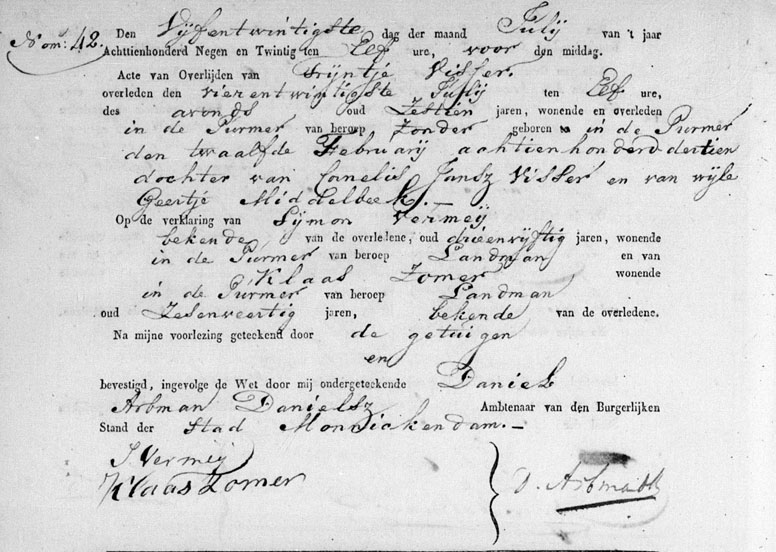 Nom: 42.
Den Vyfentwintigste dag der maand Julij van 't jaar
Achttienhonderd Negen en Twintig ten Elf ure, voor den middag.
Acte van Overlijden van Trijntje Visser.
overleden den vierentwintigste Julij ten Elf ure,
des avonds oud Zestien jaren, wonende en overleden
in de Purmer van beroep Zonder geboren in de Purmer
den twaalfde February achtienhonderd dertien
dochter van Cornelis Jansz Visser en van wijle
Geertje Middelbeek. —
Op de verklaring van Sijmon Vermeij
bekende van de overledene, oud drieenvyftig jaren, wonende
in de Purmer van beroep Landman en van
Klaas Zomer wonende
in de Purmer van beroep Landman
oud Zesenveertig jaren, bekende van de overledene.
Na mijne voorlezing geteekend door de getuigen
en
bevestigd, ingevolge de Wet door mij ondergeteekende Daniel
Arbman Danielsz Ambtenaar van den Burgerlijken
Stand der Stad Monnickendam. —
S Vermeij
Klaas Zomer
D. Arbman